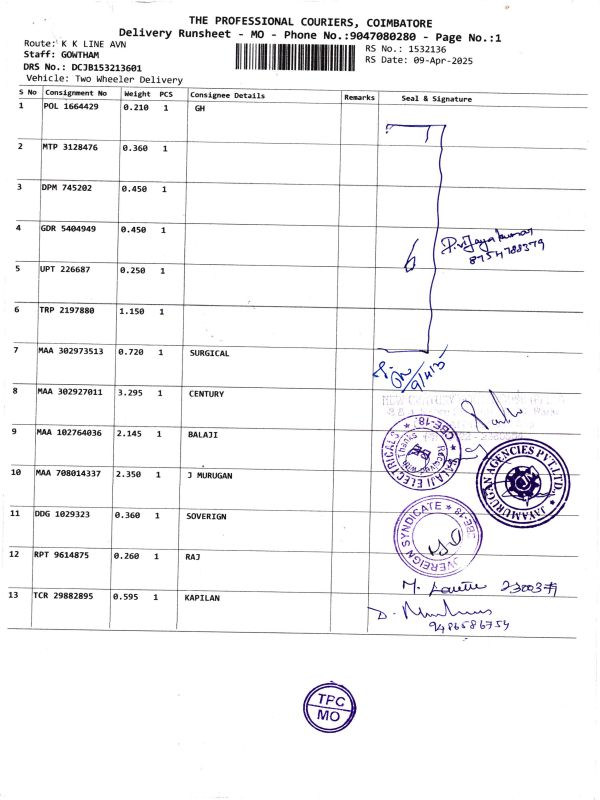 THE PROFESSIONAL COURIERS, COIMBATORE
Delivery Runsheet - MO - Phone No.:9047080280 - Page No.:1
Route: K K LINE AVN
RS No.: 1532136
Staff: GOWTHAM
RS Date: 09-Apr-2025
DRS No.: DCJB153213601
Vehicle: Two Wheeler Delivery
S No Consignment No Weight PCS Consignee Details Remarks Seal & Signature
1 POL 1664429 0.210 1 GH
2 MTP 3128476 0.360 1
3 DPM 745202 0.450 1
4 GDR 5404949 0.450 1
6
P. Vijayakumar
8754788379
5 UPT 226687 0.250 1
6 TRP 2197880 1.150 1
7 MAA 302973513 0.720 1 SURGICAL
9/4/25
8 MAA 302927011 3.295 1 CENTURY
NEW CENTURY
9 MAA 102764036 2.145 1 BALAJI
BALAJI ELECTRICALS * CBE-18. *
Received with Thanks
10 MAA 708014337 2.350 1 J MURUGAN
JAYAMURUGAN AGENCIES PVT.LTD.
11 DDG 1029323 0.360 1 SOVERIGN
SOVEREIGN SYNDICATE * CBE-18 *
12 RPT 9614875 0.260 1 RAJ
13 TCR 29882895 0.595 1 KAPILAN
9486586754
TPC
MO